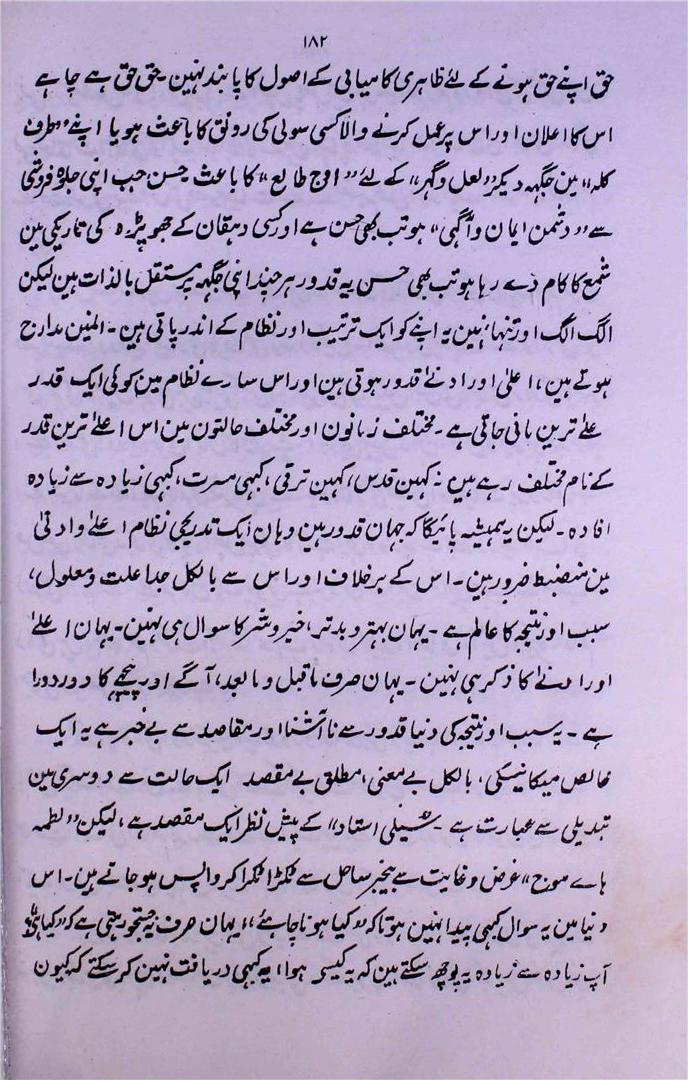 ۱۸۲
حق اپنے حق ہونے کے لئے ظاہری کامیابی کے اصول کا پابند نہین ۔ حق حق ہے چاہے
اس کا اعلان اور اس پر عمل کرنے والا کسی سولی کی رونق کا باعث ہو یا اپنے " طرف
کلہ " مین جگہہ دیکر " لعل و گہر " کے لئے " اوج طالع " کا باعث حسن جب اپنی جلوہ فروشی
سے " دشمن ایمان و آگہی " ہو تب بھی حسن ہے اور کسی دہقان کے جھوپڑہ کی تاریکی مین
شمع کا کام دے رہا ہو تب بھی حسن یہ قدور ہر چند اپنی جگہہ پر مستقل بالذات ہین لیکن
الگ الگ اور تنہا نہین یہ اپنے کو ایک ترتیب اور نظام کے اندر پاتی ہین ۔ المنین مدارج
ہوتے ہین ، اعلیٰ اور ادنےٰ قدور ہوتی ہین اور اس سارے نظام مین کوئی ایک قدر
علےٰ ترین بانی جاتی ہے ۔ مختلف زبانون اور مختلف حالتون مین اس اعلےٰ ترین قدر
کے نام مختلف رہے ہین : کہین قدس ، کہین ترقی ، کبہی مسرت ، کبہی زیادہ سے زیادہ
افادہ ۔ لیکن یہ ہمیشہ پائیگا کہ جہان قدور ہین وہان ایک تدریجی نظام اعلےٰ و ادنیٰ
مین منضبط ضرور ہین ۔ اس کے برخلاف اور اس سے بالکل جدا علت و معلول ،
سبب اور نتیجہ کا عالم ہے ۔ یہان بہتر و بدتر ، خیر و شر کا سوال ہی نہین ۔ یہان اعلےٰ
اور ادنےٰ کا ذکر ہی نہین ۔ یہان صرف ماقبل و مابعد ، آگے اور پیچھے کا دور دورا
ہے ۔ یہ سبب اور نتیجہ کی دنیا قدور سے ناآشنا اور مقاصد سے بےخبر ہے یہ ایک
خالص میکانیکی ، بالکل بےمعنی ، مطلق بےمقصد ایک حالت سے دوسری مین
تبدیلی سے عبارت ہے ۔ " سیلی استاد " کے پیش نظر ایک مقصد ہے ، لیکن " لطمہ
ہاے موج " غرض و غایت سے بیخبر ساحل سے ٹکرا ٹکرا کر واپس ہو جاتے ہین ۔ اس
دنیا مین یہ سوال کبہی پیدا نہین ہوتا کہ " کیا ہونا چاہئے " ، یہان صرف یہ جستجو رہتی ہے کہ " کیا ہے "
آپ زیادہ سے زیادہ یہ پوچھ سکتے ہین کہ یہ کیسے ہوا ، یہ کبہی دریافت نہین کر سکتے کہ کیون